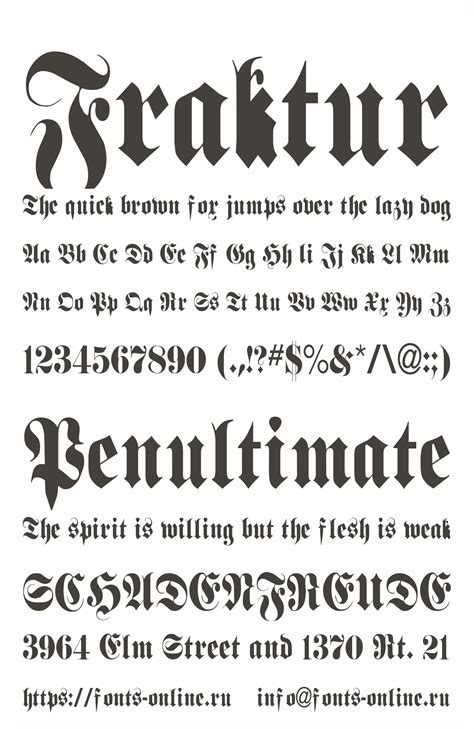 Fraktur
The quick brown fox jumps over the lazy dog
Aa Bb Cc Dd Ee Ff Gg Hh Ii Jj Kk Ll Mm
Nn Oo Pp Qq Rr Ss Tt Uu Vv Ww Xx Yy Zz
1234567890 (.,!?#$%&*/\@:;)
Penultimate
The spirit is willing but the flesh is weak
SCHADENFREUDE
3964 Elm Street and 1370 Rt. 21
https://fonts-online.ru info@fonts-online.ru